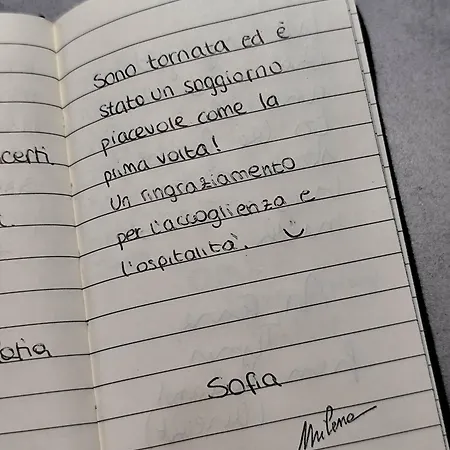 certi
Sono tornata ed è
stato un soggiorno
piacevole come la
prima volta!
Un ringraziamento
per l'accoglienza e
l'ospitalità.
Sofia
Milena